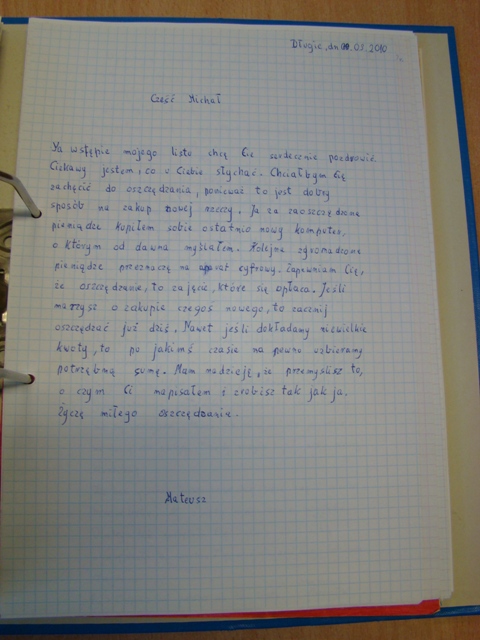 Długie, dn. .03.2010
Cześć Michał
Na wstępie mojego listu chcę Cię serdecznie pozdrowić.
Ciekawy jestem, co u Ciebie słychać. Chciałbym Cię
zachęcić do oszczędzania, ponieważ to jest dobry
sposób na zakup nowej rzeczy. Ja za zaoszczędzone
pieniądze kupiłem sobie ostatnio nowy komputer,
o którym od dawna myślałem. Kolejne zgromadzone
pieniądze przeznaczę na aparat cyfrowy. Zapewniam Cię,
że oszczędzanie, to zajęcie, które się opłaca. Jeśli
marzysz o zakupie czegoś nowego, to zacznij
oszczędzać już dziś. Nawet jeśli dokładamy niewielkie
kwoty, to po jakimś czasie na pewno uzbieramy
potrzebną sumę. Mam nadzieję, że przemyślisz to,
o czym Ci napisałem i zrobisz tak jak ja.
Życzę miłego oszczędzania.
Mateusz